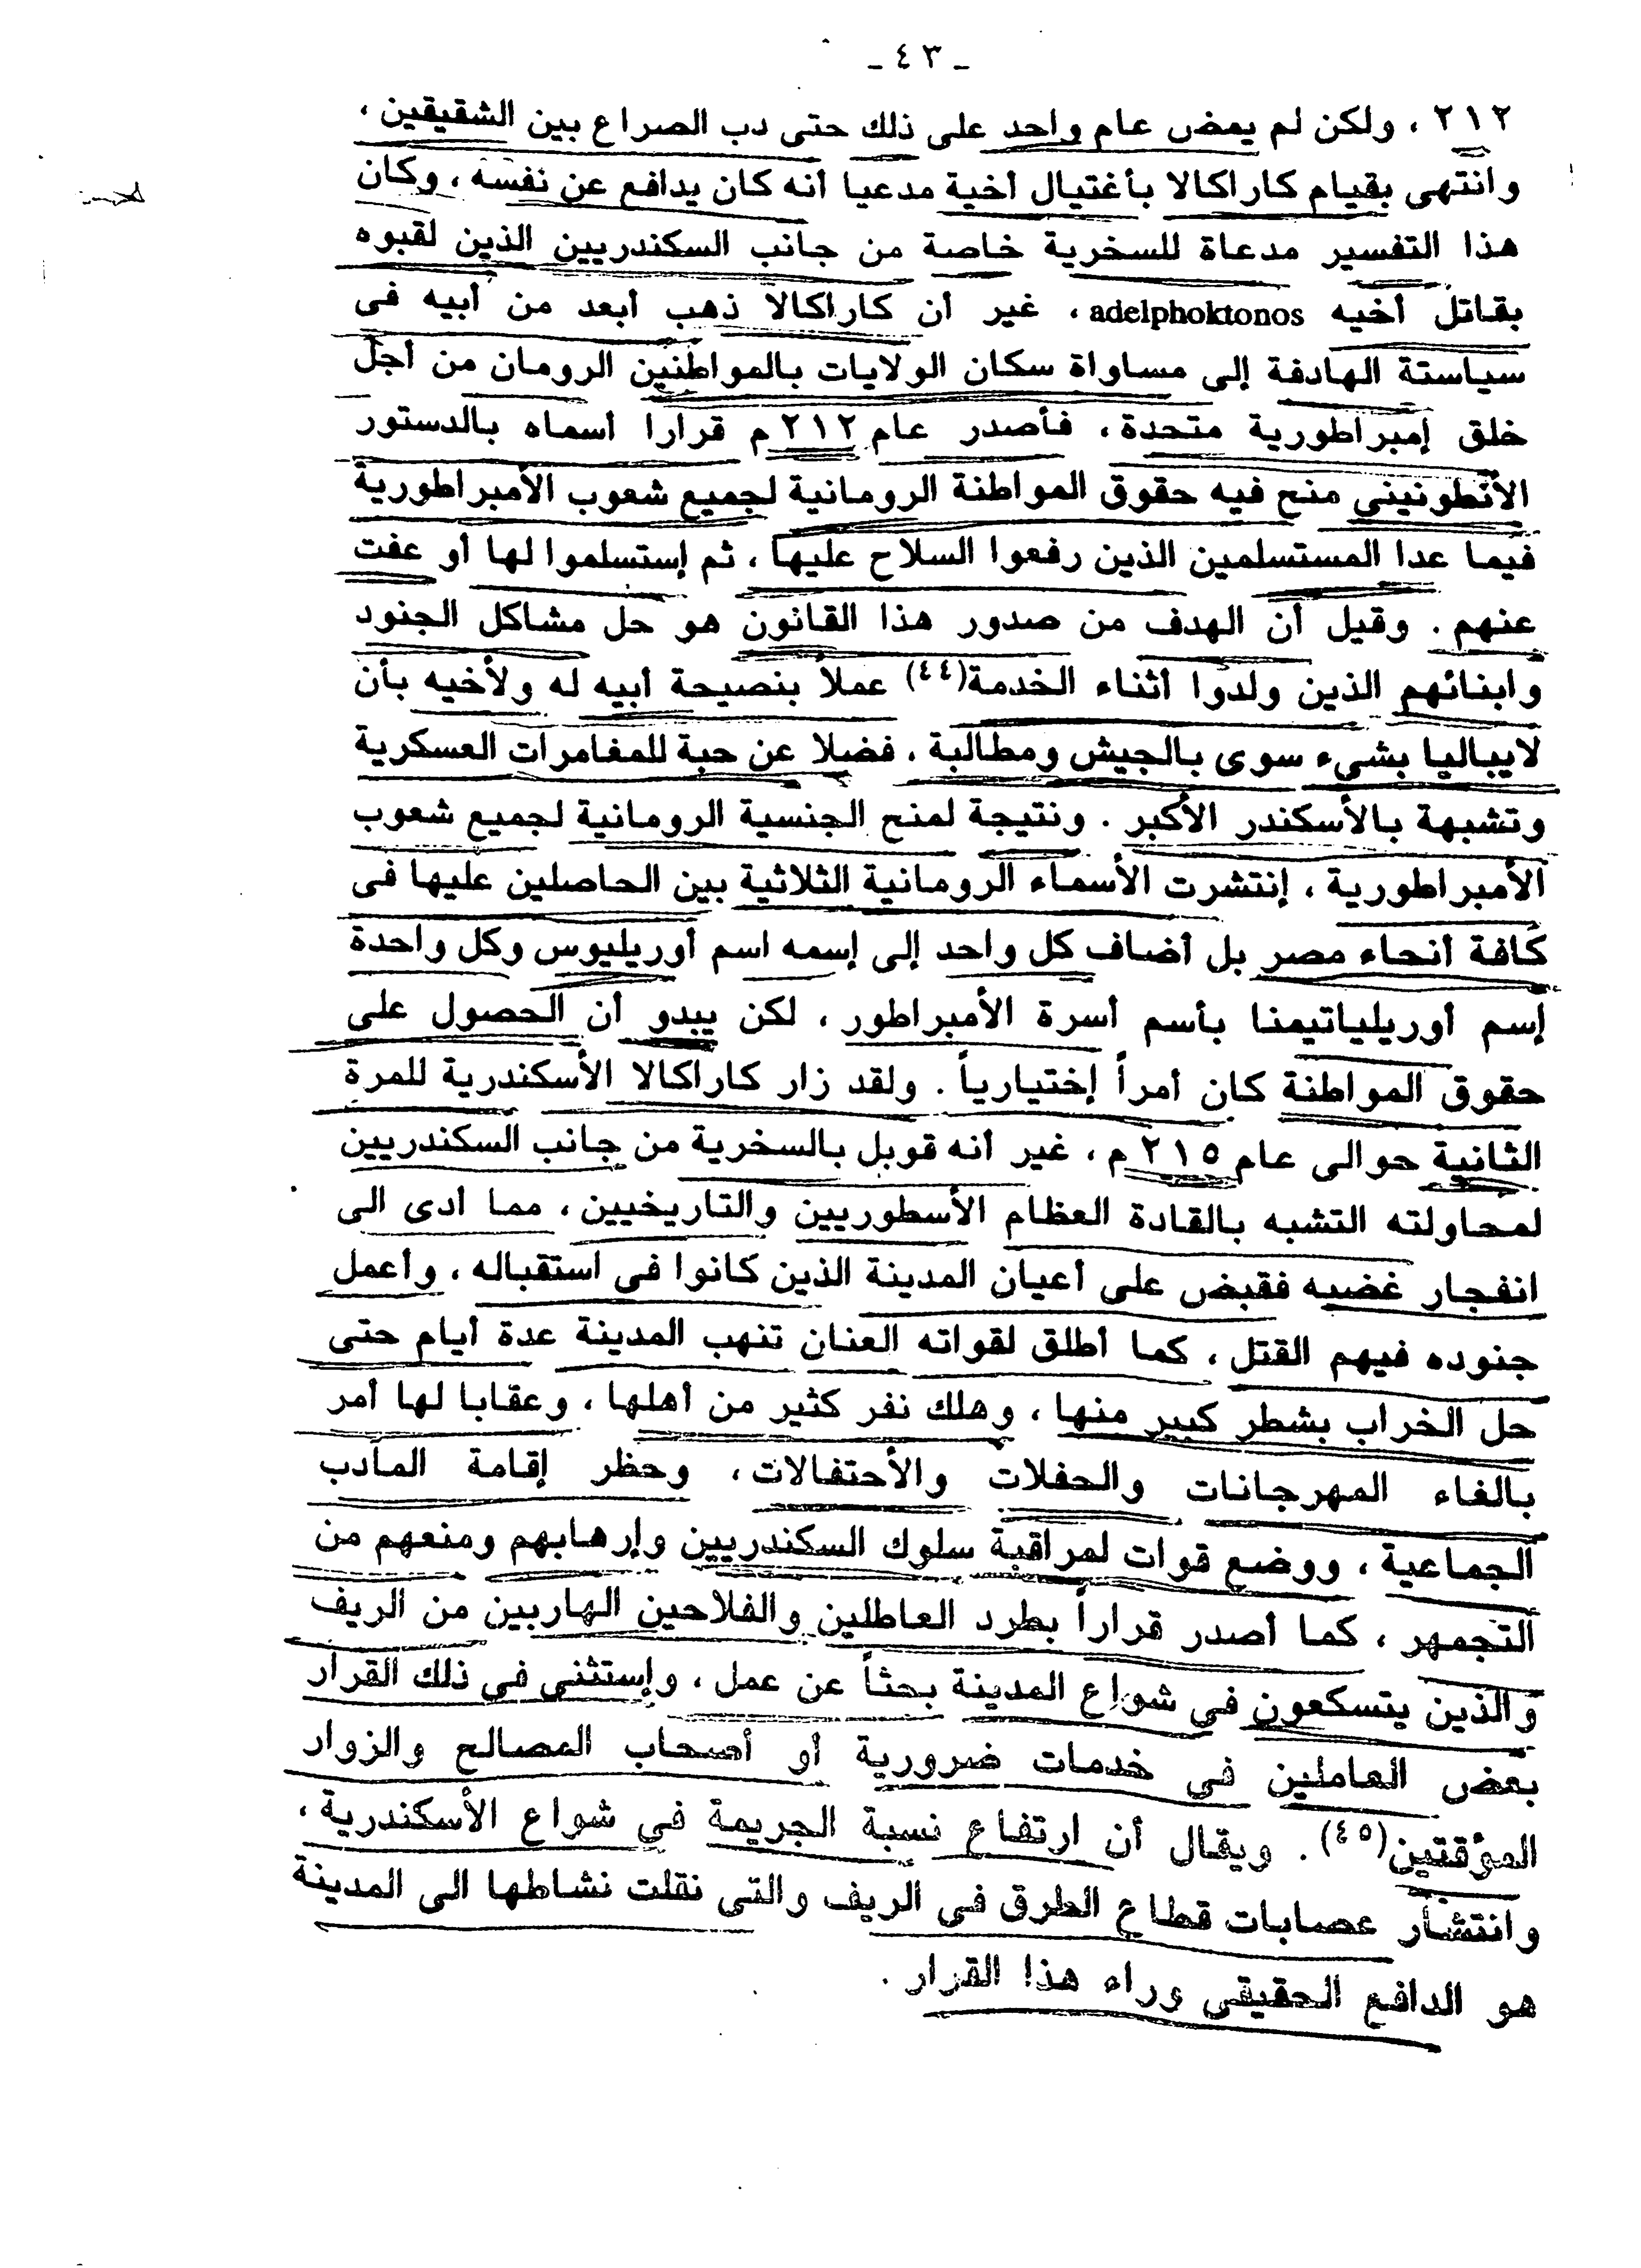 - ٤٣ -
٢١٢ ، ولكن لم يمض عام واحد على ذلك حتى دب الصراع بين الشقيقين ،
وانتهى بقيام كاراكالا بأغتيال أخية مدعيا أنه كان يدافع عن نفسة ، وكان
هذا التفسير مدعاة للسخرية خاصة من جانب السكندريين الذين لقبوه
بقاتل أخيه adelphoktonos ، غير أن كاراكالا ذهب أبعد من أبيه فى
سياستة الهادفة إلى مساواة سكان الولايات بالمواطنين الرومان من أجل
خلق إمبراطورية متحدة ، فأصدر عام ٢١٢ م قرارا أسماه بالدستور
الأنطونيني منح فيه حقوق المواطنة الرومانية لجميع شعوب الأمبراطورية
فيما عدا المستسلمين الذين رفعوا السلاح عليها ، ثم إستسلموا لها أو عفت
عنهم . وقيل أن الهدف من صدور هذا القانون هو حل مشاكل الجنود
وابنائهم الذين ولدوا أثناء الخدمة(٤٤) عملاً بنصيحة أبيه له ولأخيه بأن
لايباليا بشىء سوى بالجيش ومطالبة ، فضلا عن حبة للمغامرات العسكرية
وتشبهة بالأسكندر الأكبر . ونتيجة لمنح الجنسية الرومانية لجميع شعوب
الأمبراطورية ، إنتشرت الأسماء الرومانية الثلاثية بين الحاصلين عليها فى
كافة أنحاء مصر بل أضاف كل واحد إلى إسمه اسم أوريليوس وكل واحدة
إسم أوريلياتيمنا بأسم أسرة الأمبراطور ، لكن يبدو أن الحصول على
حقوق المواطنة كان أمراً إختيارياً . ولقد زار كاراكالا الأسكندرية للمرة
الثانية حوالى عام ٢١٥ م ، غير أنه قوبل بالسخرية من جانب السكندريين
لمحاولته التشبه بالقادة العظام الأسطوريين والتاريخيين ، مما أدى الى
انفجار غضبه فقبض على أعيان المدينة الذين كانوا فى استقباله ، وأعمل
جنوده فيهم القتل ، كما أطلق لقواته العنان تنهب المدينة عدة أيام حتى
حل الخراب بشطر كبير منها ، وهلك نفر كثير من أهلها ، وعقابا لها أمر
بالغاء المهرجانات والحفلات والأحتفالات ، وحظر إقامة المآدب
الجماعية ، ووضع قوات لمراقبة سلوك السكندريين وإرهابهم ومنعهم من
التجمهر ، كما أصدر قراراً بطرد العاطلين والفلاحين الهاربين من الريف
والذين يتسكعون في شواع المدينة بحثاً عن عمل ، وإستثنى فى ذلك القرار
بعض العاملين في خدمات ضرورية أو أصحاب المصالح والزوار
المؤقتين(٤٥) . ويقال أن ارتفاع نسبة الجريمة في شواع الأسكندرية ،
وانتشار عصابات قطاع الطرق في الريف والتى نقلت نشاطها الى المدينة
هو الدافع الحقيقى وراء هذا القرار .